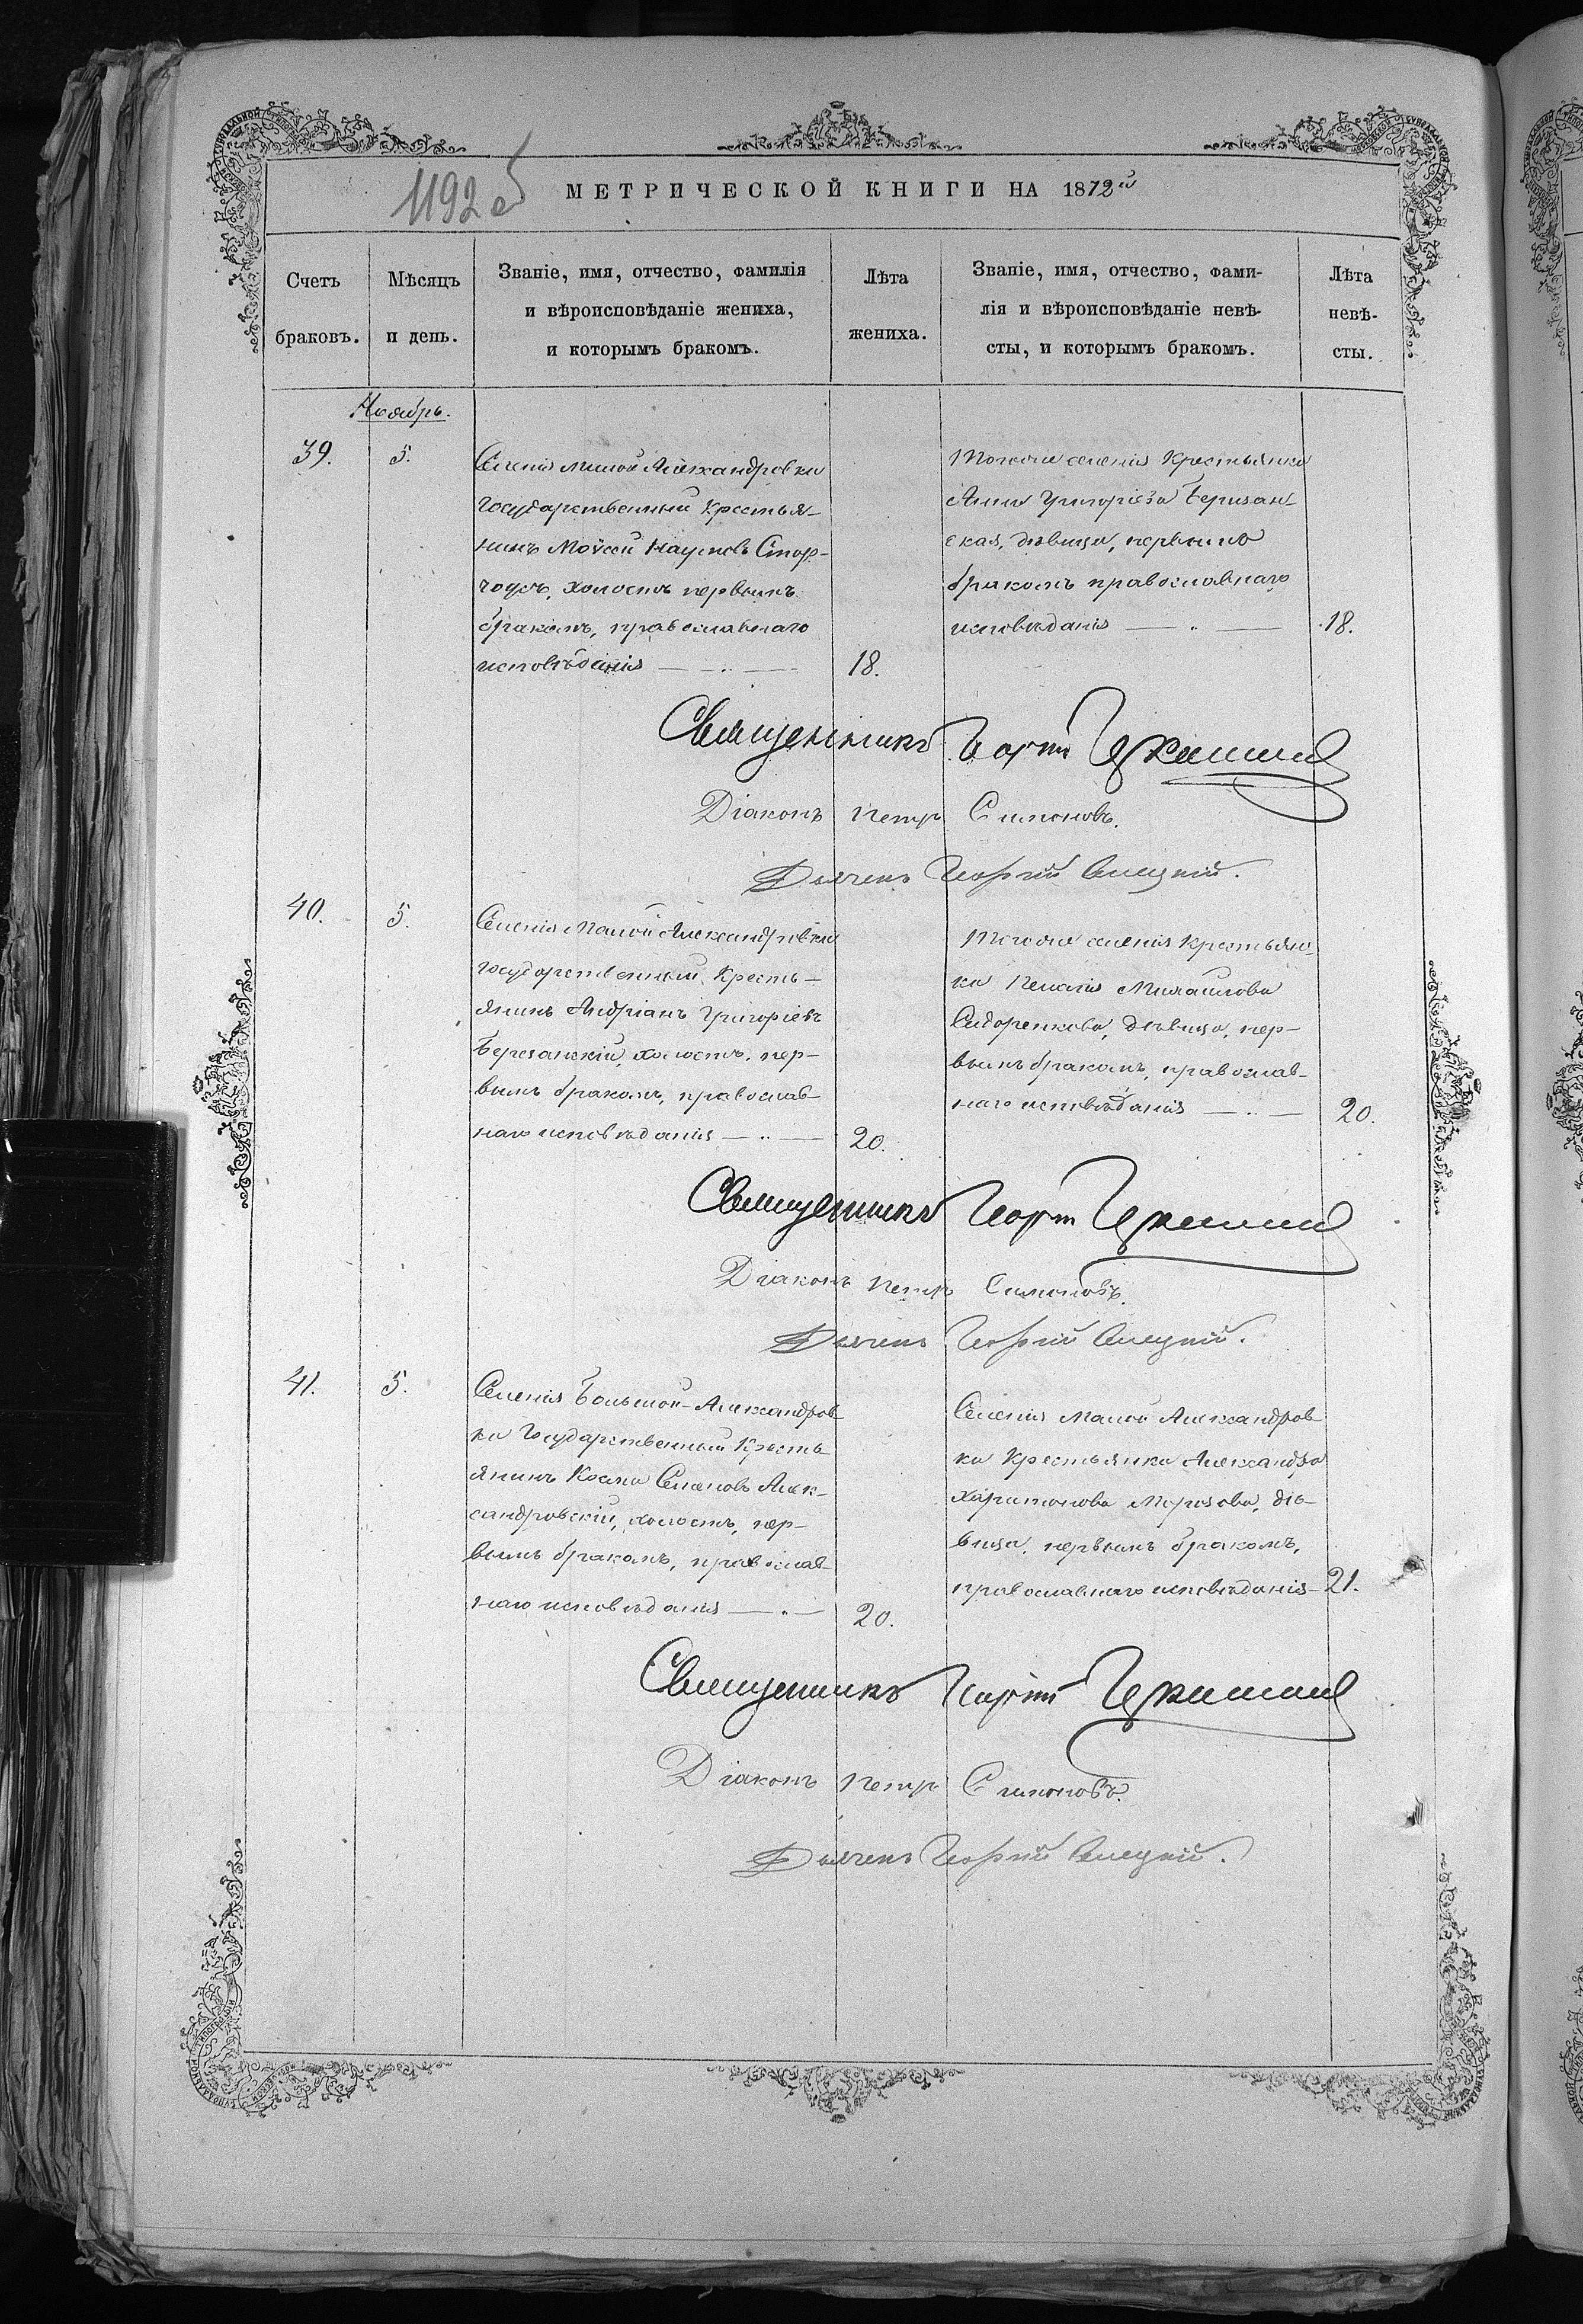 1192 об
МЕТРИЧЕСКОЙ КНИГИ НА 1872й
Счетъ браковъ.
Мѣсяцъ и день.
Званіе, имя, отчество, фамилія
и вѣроисповѣданіе жениха,
и которымъ бракомъ.
Лѣта жениха.
Званіе, имя, отчество, фами-
лія и вѣроисповѣданіе невѣ-
сты, и которымъ бракомъ.
Лѣта невѣ-
сты.
Ноябрь.
39. 5.
Селенія Малой Александровки
государственный крестья-
нинъ Моѵсей Наумовъ Стор-
чодъ, холостъ первымъ
бракомъ, православнаго
исповѣданія — „ — 18.
Тогоже селенія крестьянка
Анна Григоріева Беризан-
ская, дѣвица, первымъ
бракомъ православнаго
исповѣданія — „ — 18.
Священникъ Георгій
Діаконъ Петръ Симоновъ.
Дьячекъ Георгій
40. 5.
Селенія Малой Александровки
государственный кресть-
янинъ Андріанъ Григоріевъ
Березанскій, холостъ, пер-
вымъ бракомъ, православ-
наго исповѣданія — „ — 20.
Тогоже селенія крестьян-
ка Пелагія Михайлова
Сидоренкова, дѣвица, пер-
вымъ бракомъ, православ-
наго исповѣданія — „ — 20.
Священникъ Георгій
Діаконъ Петръ Симоновъ.
Дьячекъ Георгій
41. 5.
Селенія Большой-Александров-
ки государственный кресть-
янинъ Косма Семеновъ Алек-
сандровскій, холостъ, пер-
вымъ бракомъ, православ-
наго исповѣданія — „ — 20.
Селенія Малой Александров-
ки крестьянка Александра
Харитонова Морозова, дѣ-
вица, первымъ бракомъ,
православнаго исповѣданія — 21.
Священникъ Георгій
Діаконъ Петръ Симоновъ.
Дьячекъ Георгій